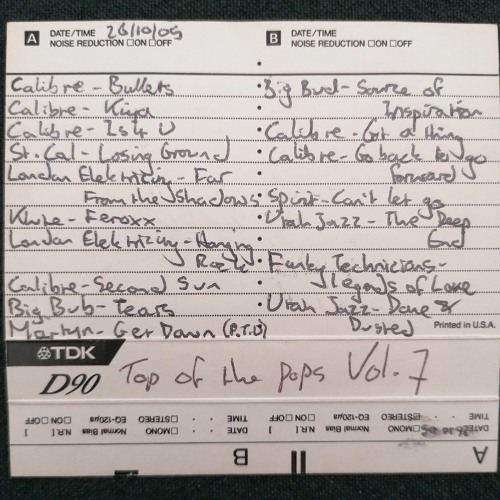 A DATE/TIME 26/10/05
NOISE REDUCTION ☐ON ☐OFF
B DATE/TIME
NOISE REDUCTION ☐ON ☐OFF
Calibre - Bullets
Calibre -
Calibre - Is 4 U
St. Cal - Losing Ground
London Elektricity - Far
From the Shadows
Klute - Feroxx
London Elektricity - Hanging
Rock
Calibre - Second Sun
Big Bub - Tears
Martyn - Get Down (P.T.O)
Big Bud - Source of
Inspiration
Calibre - Got a thing
Calibre - Go back to go
forward
Spirit - Can't let go
Utah Jazz - The Deep
End
Funky Technicians -
Legends of Love
Utah Jazz - Done &
Dusted
Printed in U.S.A.
TDK
D90 Top of the pops Vol. 7
A
DATE/TIME 26 10 05
N.R. [ ] ON ☐ OFF ☐
Normal Bias EQ-120µs
☐MONO ☐STEREO
B
DATE TIME
N.R. [ ] ON ☐ OFF ☐
Normal Bias EQ-120µs
☐MONO ☐STEREO